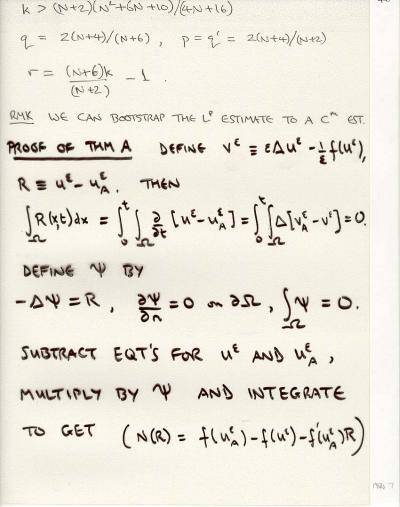 k > (N+2)(N²+6N+10)/(4N+16)
q = 2(N+4)/(N+6) , p = q' = 2(N+4)/(N+2)
r = (N+6)k/(N+2) - 1 .
RMK WE CAN BOOTSTRAP THE Lᵖ ESTIMATE TO A Cᵐ EST.
PROOF OF THM A DEFINE v^ε ≡ εΔu^ε - 1/ε f(u^ε),
R ≡ u^ε - u_A^ε. THEN
∫_Ω R(x,t)dx = ∫_0^t ∫_Ω ∂/∂t [u^ε - u_A^ε] = ∫_0^t ∫_Ω Δ[v_A^ε - v^ε] = 0.
DEFINE Ψ BY
-ΔΨ = R , ∂Ψ/∂n = 0 on ∂Ω , ∫_Ω Ψ = 0.
SUBTRACT EQT'S FOR u^ε AND u_A^ε ,
MULTIPLY BY Ψ AND INTEGRATE
TO GET (N(R) = f(u_A^ε) - f(u^ε) - f'(u_A^ε)R)